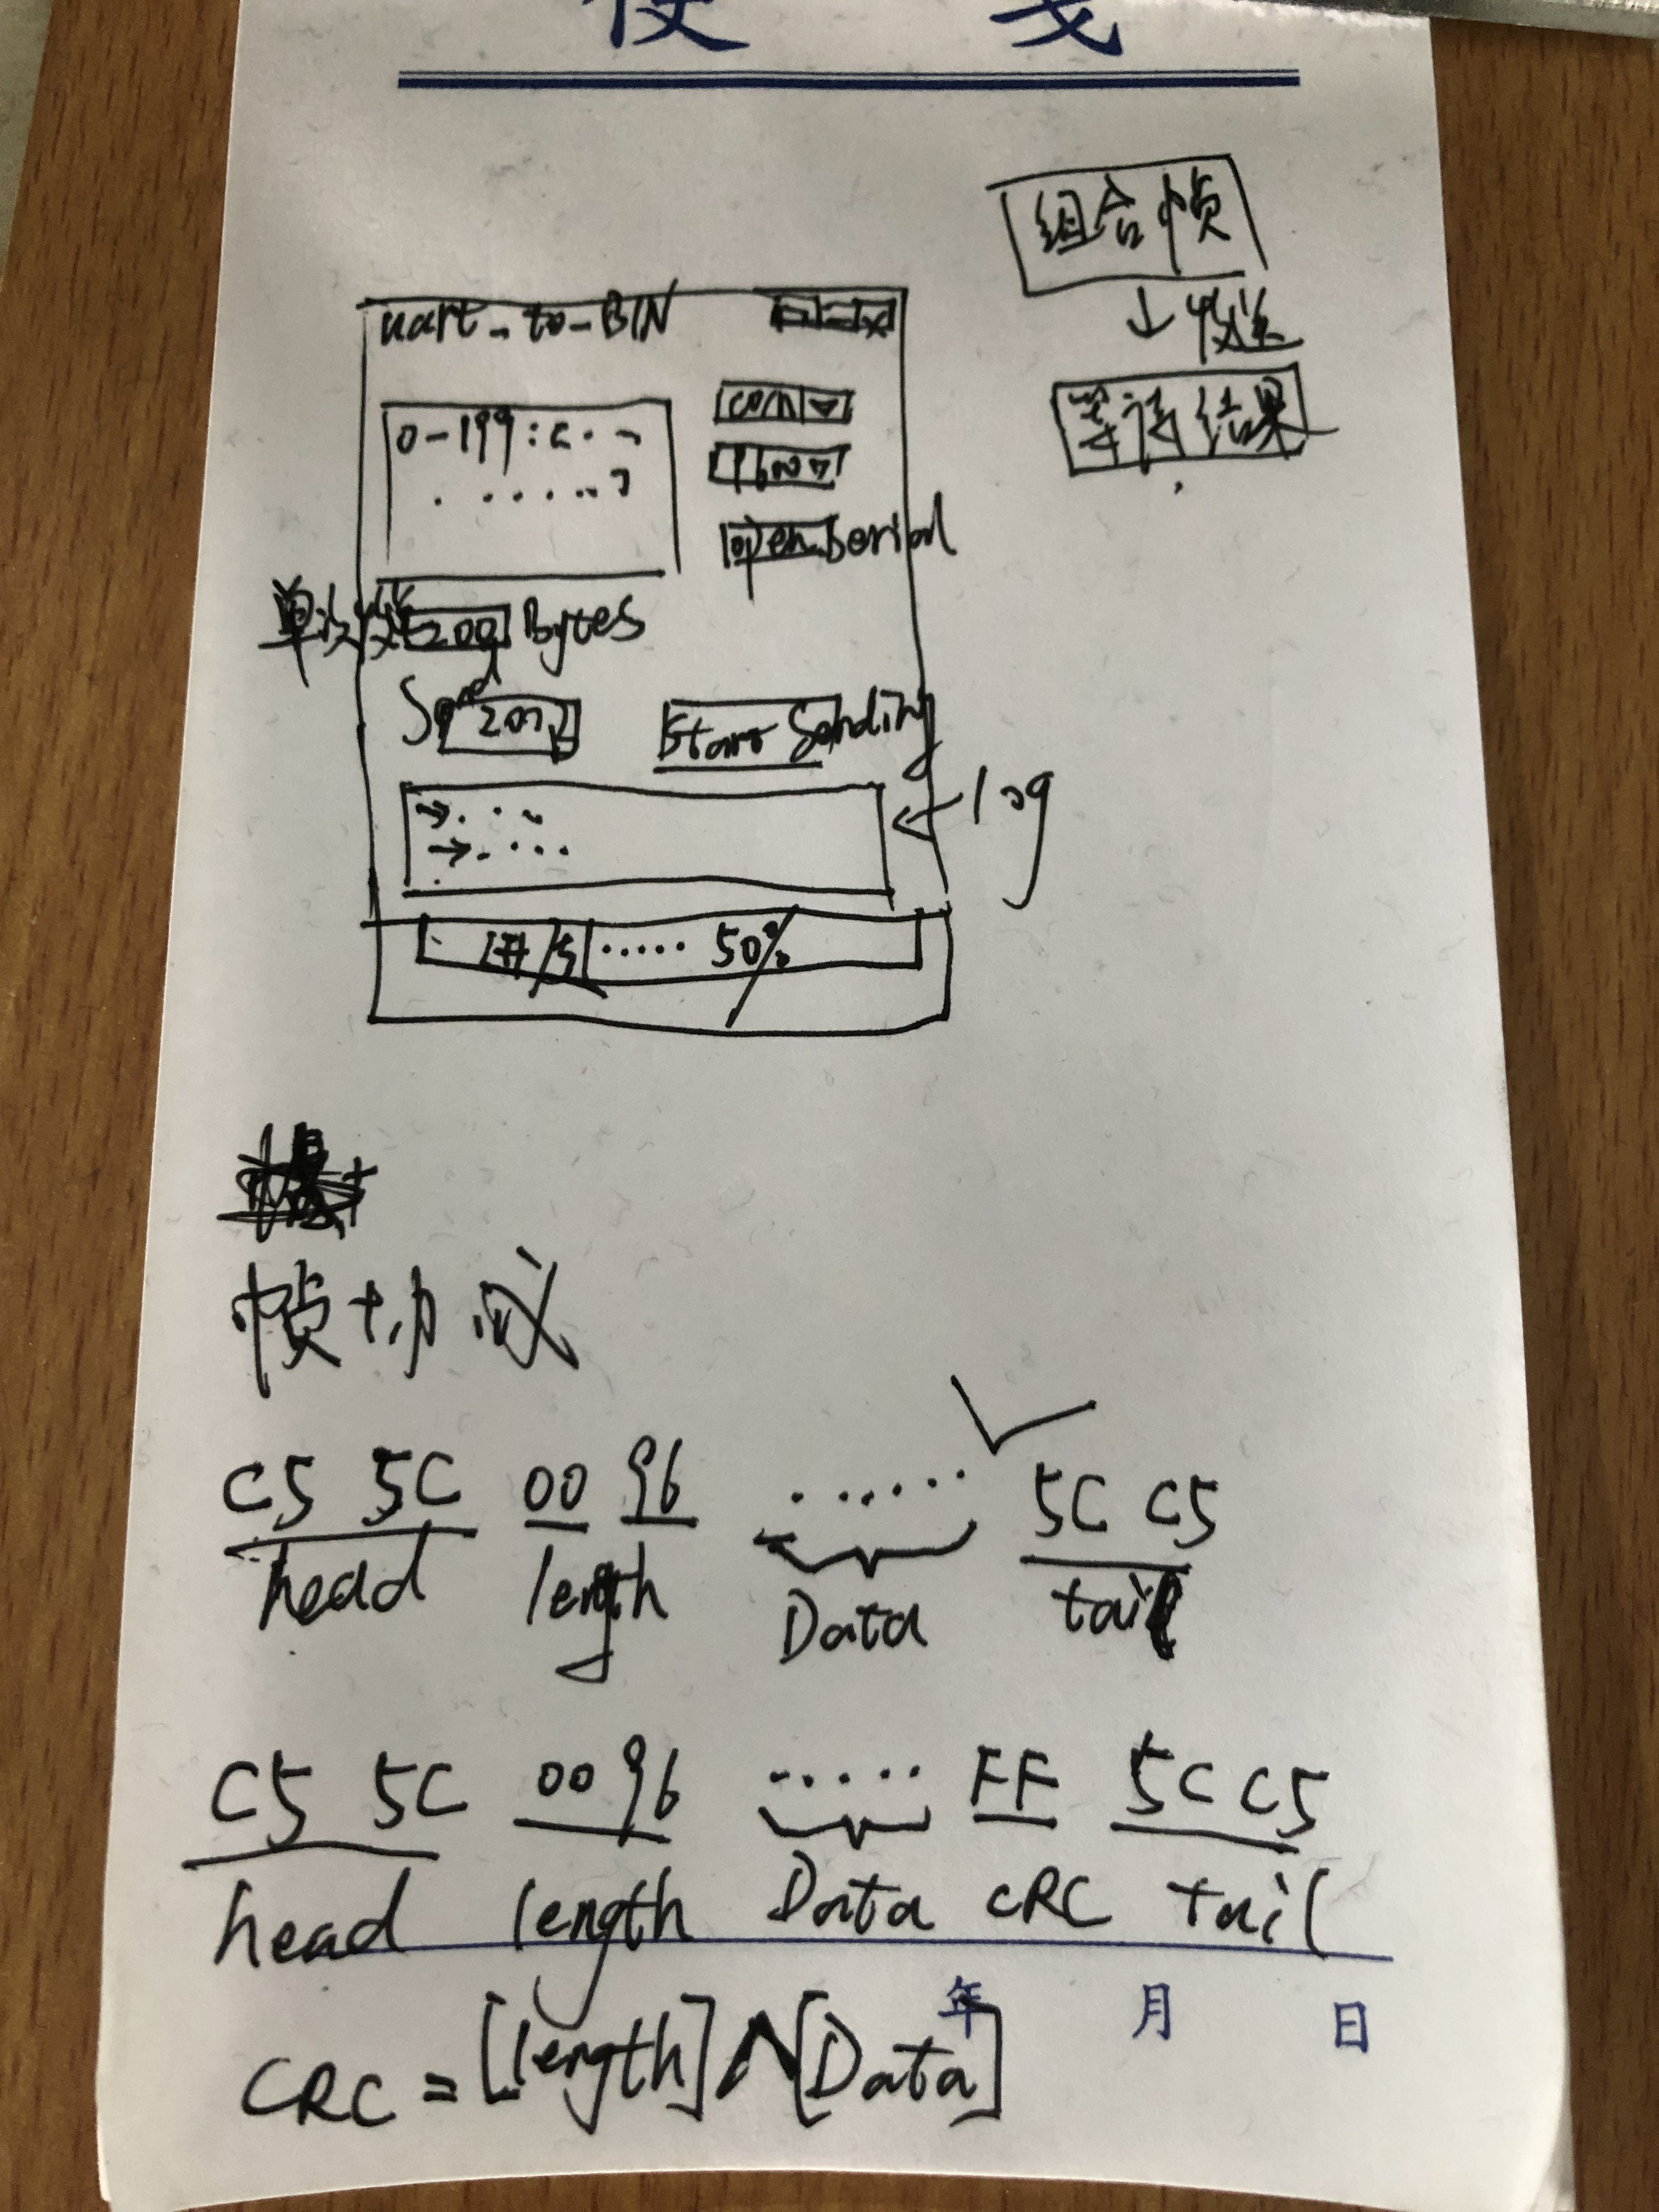 便 笺
组合帧
↓ 发送
等待结果
uart_to_BIN
com
0-199:
open serial
单次发送 200 Bytes
200
Start Sending
→
→
← log
1/5 ..... 50%
帧协议
C5 5C 00 96 ....... 5C C5
head length Data tail
C5 5C 00 96 ...... FF 5C C5
head length Data CRC tail
年 月 日
CRC = [length]^[Data]